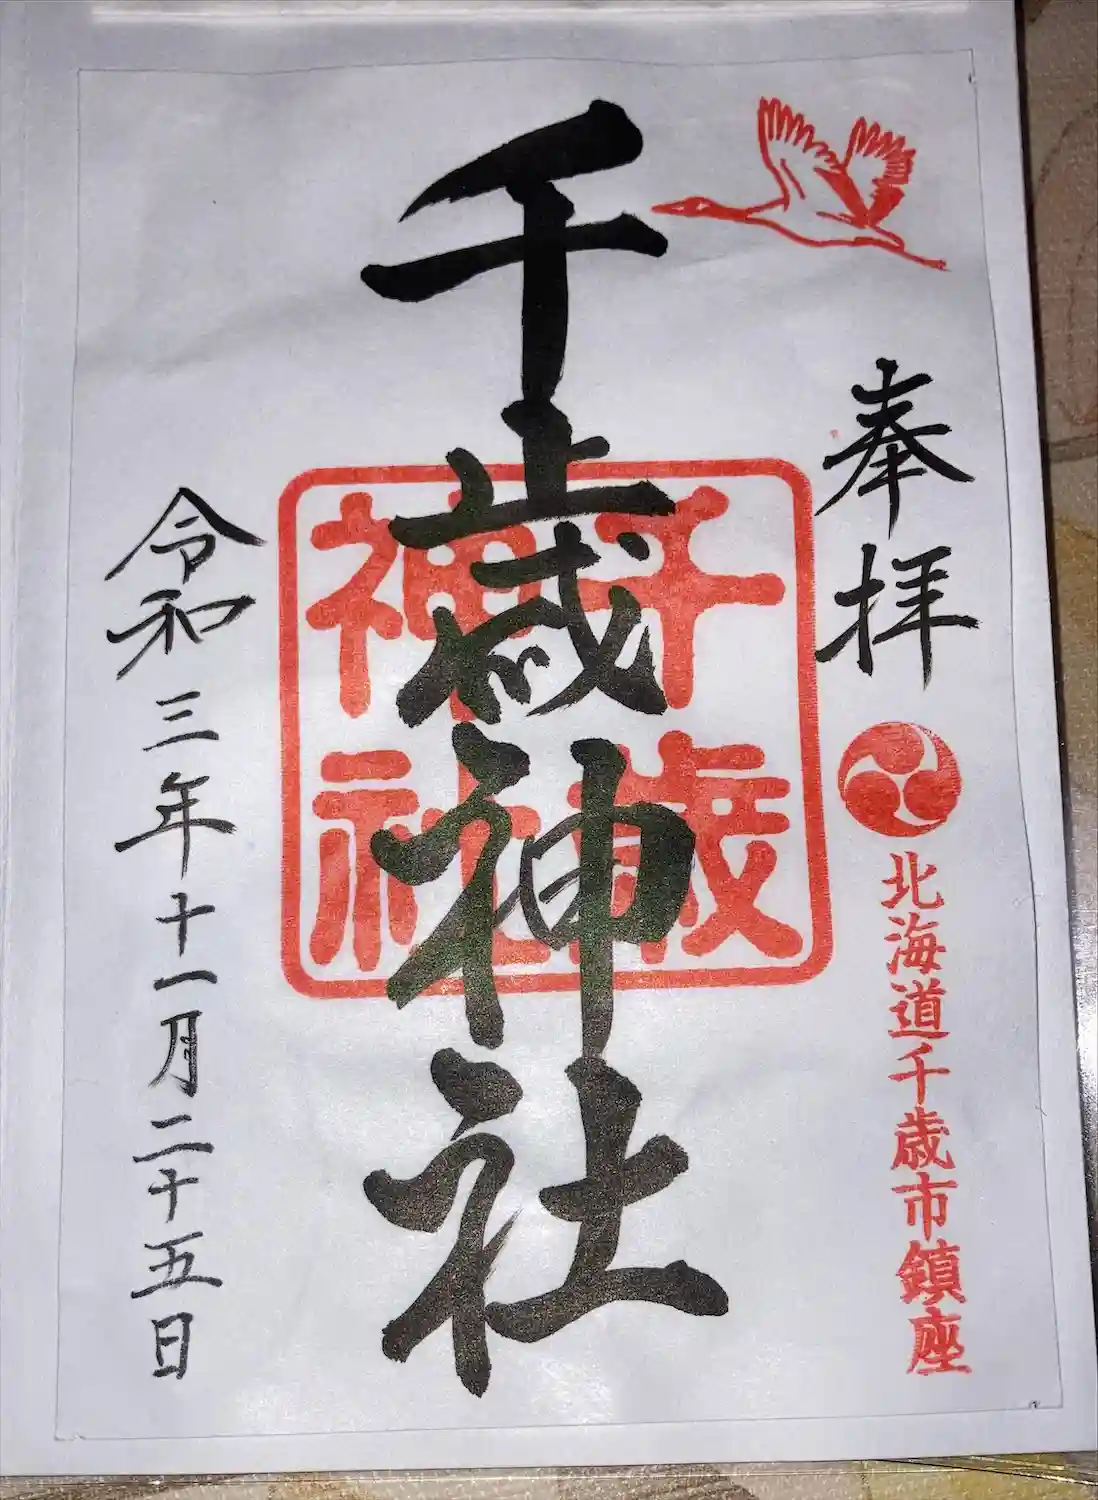 奉拝
北海道千歳市鎮座
千歳神社
千歳
神社
令和三年十一月二十五日